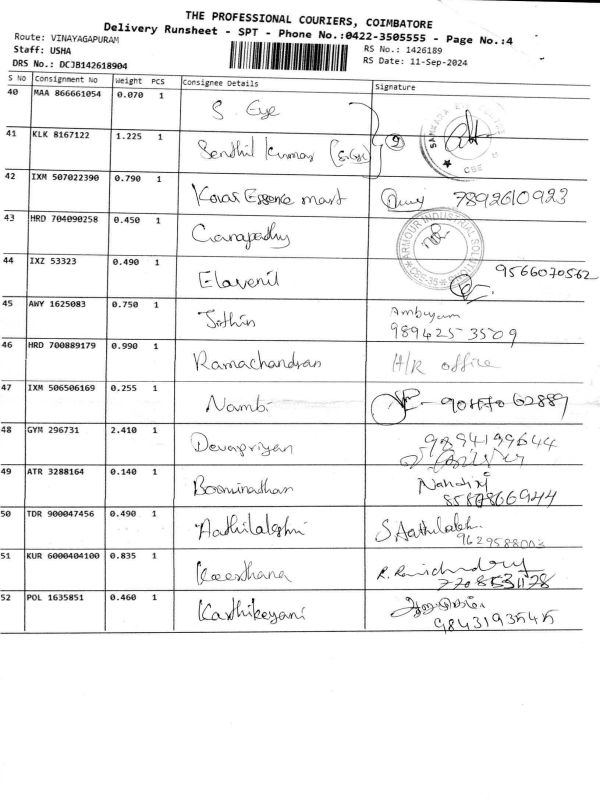 THE PROFESSIONAL COURIERS, COIMBATORE
Delivery Runsheet - SPT - Phone No.:0422-3505555 - Page No.:4
Route: VINAYAGAPURAM
Staff: USHA
RS No.: 1426189
DRS No.: DCJB142618904
RS Date: 11-Sep-2024
S No Consignment No Weight PCS Consignee Details Signature
40 MAA 866661054 0.070 1 S. Eye
41 KLK 8167122 1.225 1 Senthil Kumar
42 IXM 507022390 0.790 1 Kovai Essence mart 7892610923
43 HRD 704090258 0.450 1 Ganapathy
ARMOUR INDUSTRIAL SOLUTIONS CBE-35
44 IXZ 53323 0.490 1 Elavenil 9566070562
45 AWY 1625083 0.750 1 Jithin Ambigam
9894253509
46 HRD 700889179 0.990 1 Ramachandran H/R office
47 IXM 506506169 0.255 1 Nambi
48 GYM 296731 2.410 1 Devapriyan 9894199644
49 ATR 3288164 0.140 1 Boominathan Nandini
50 TDR 900047456 0.490 1 Aathilakshmi S Aathilaksh
51 KUR 6000404100 0.835 1 Keerthana
52 POL 1635851 0.460 1 Karthikeyani
9843193545